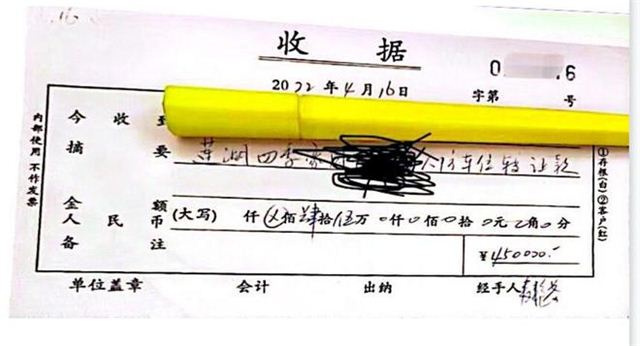 16
收据
2022年4月16日 字第0 6号
今收到
摘要 莲湖四季 车位转让款
金额人民币(大写) 仟⊗佰肆拾伍万0仟0佰0拾0元0角0分
备注 ¥450000.-
单位盖章 会计 出纳 经手人
内部使用 不作发票
①存根(白)②客户(红)